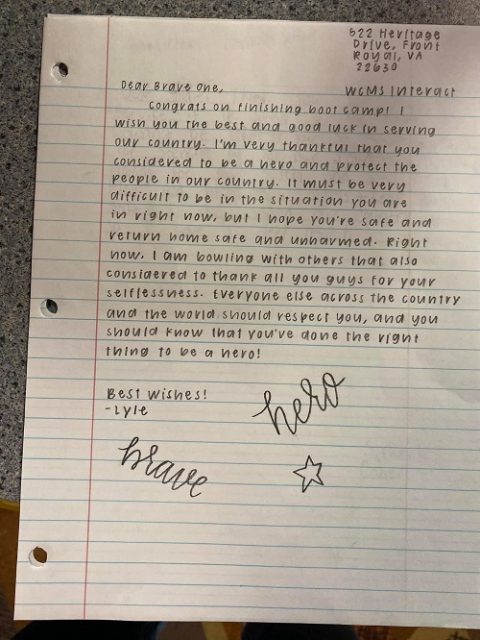 522 Heritage
Drive, Front
Royal, VA
22630
WCMS Interact
Dear Brave One,
Congrats on finishing boot camp! I
wish you the best and good luck in serving
our country. I'm very thankful that you
considered to be a hero and protect the
people in our country. It must be very
difficult to be in the situation you are
in right now, but I hope you're safe and
return home safe and unharmed. Right
now, I am bowling with others that also
considered to thank all you guys for your
selflessness. Everyone else across the country
and the world should respect you, and you
should know that you've done the right
thing to be a hero!
Best Wishes!
-Lyle
hero
brave